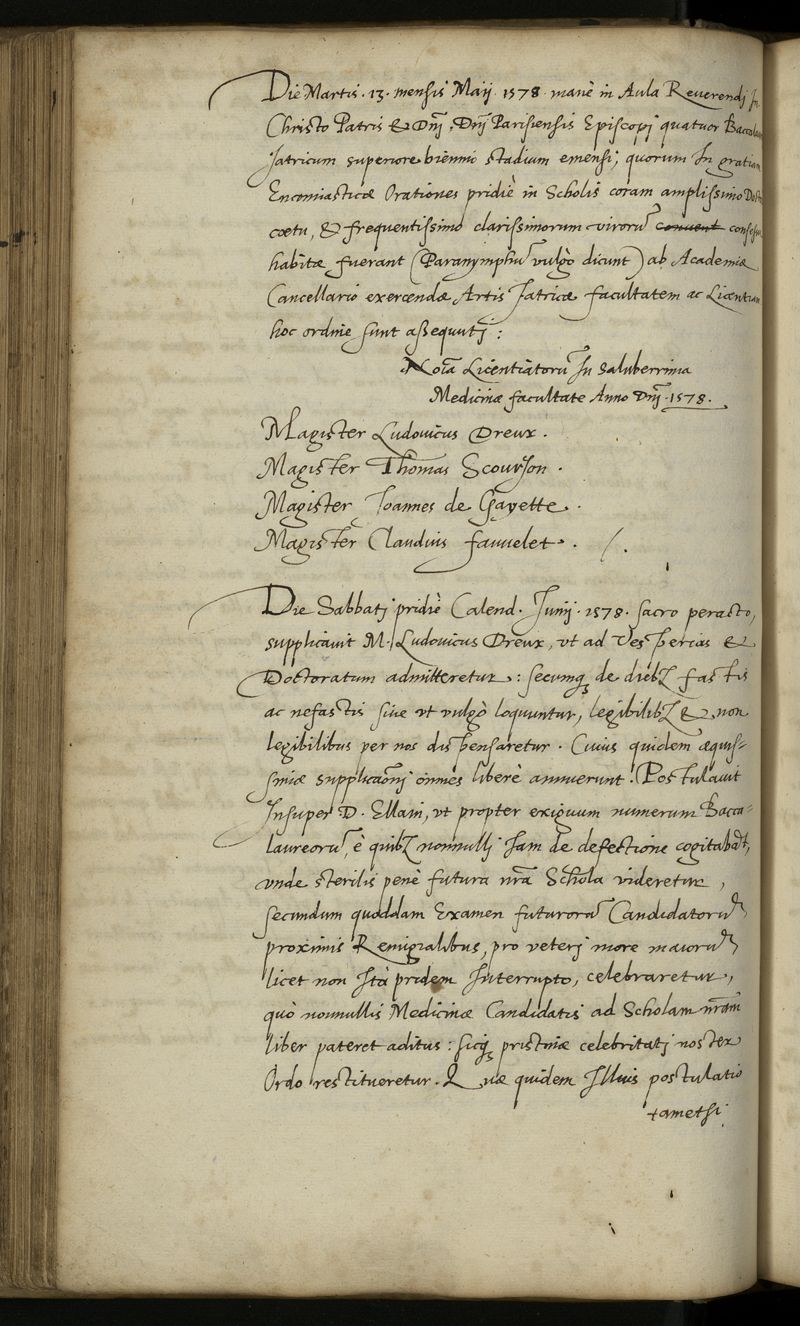 Die Martis . 13 . mensis Maij . 1578 . manè in Aula Reuerendj In
Christo Patris & Dnj . Dnj Parisiensis Episcopj quatuor Baccalau
Iatricum superiore biennio stadium emensj, quorum In gratiam
Encomiasticæ Orationes pridiè in Scholis coram amplissimo Doct
cœtu, & frequentissimo clarissimorum virorū conuent consessu
habitæ fuerant (Paranymphū vulgò dicunt) ab Academiæ
Cancellario exercendæ Artis Iatricæ facultatem ac Licentiam
hoc ordine sunt assequutj :
Noīa Licentiatorū In saluberrima
Medicinæ facultate Anno Dnj . 1578 .
Magister Ludouicus Dreux .
Magister Thomas Scourjon .
Magister Ioannes de Gayette .
Magister Claudius fauuelet . /.
Die Sabbatj pridiè Calend . Iunij . 1578 . sacro peracto,
supplicauit M. Ludouicus Dreux, vt ad Vesperias &
Doctoratum admitteretur : secumq; de dieb; fastis
ac nefastis siue vt vulgò loquuntur, legibilib; & non
legibilibus per nos dispensaretur . Cuius quidem æquis=
simæ supplicaōnj omnes liberè annuerunt . Postulauit
Insuper D . Ellain, vt propter exiguum numerum Bacca=
laureorū, è quib; nonnullj Iam de defectione cogitabāt,
vnde sterilis penè futura nrā Schola videretur,
secundum quoddam Examen futurorū Candidatorū
proximis Remigialibus, pro veterj more maiorū
licet non Ità pridem Interrupto, celebraretur,
quò nonnullis Medicinæ Candidatis ad Scholam nrām
liber pateret aditus : sicq; pristinæ celebritatj noster
Ordo restitueretur . Quæ quidem Illius postulatio
tametsi